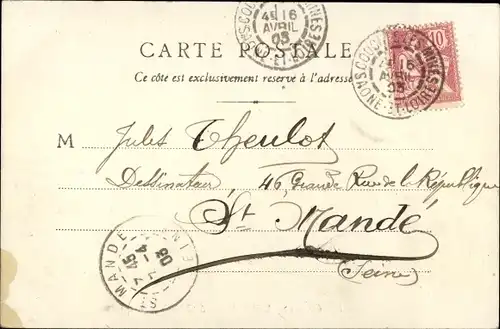 4E 16
AVRIL
03
CARTE POSTALE
Ce côté est exclusivement réservé à l'adresse
10
16
AVRIL
03
SAONE-ET-LOIRE
M Jules Theulot
Dessinateur 46, Grande Rue de la République
St Mandé
(Seine)
ST MANDE
7 45
-4
03